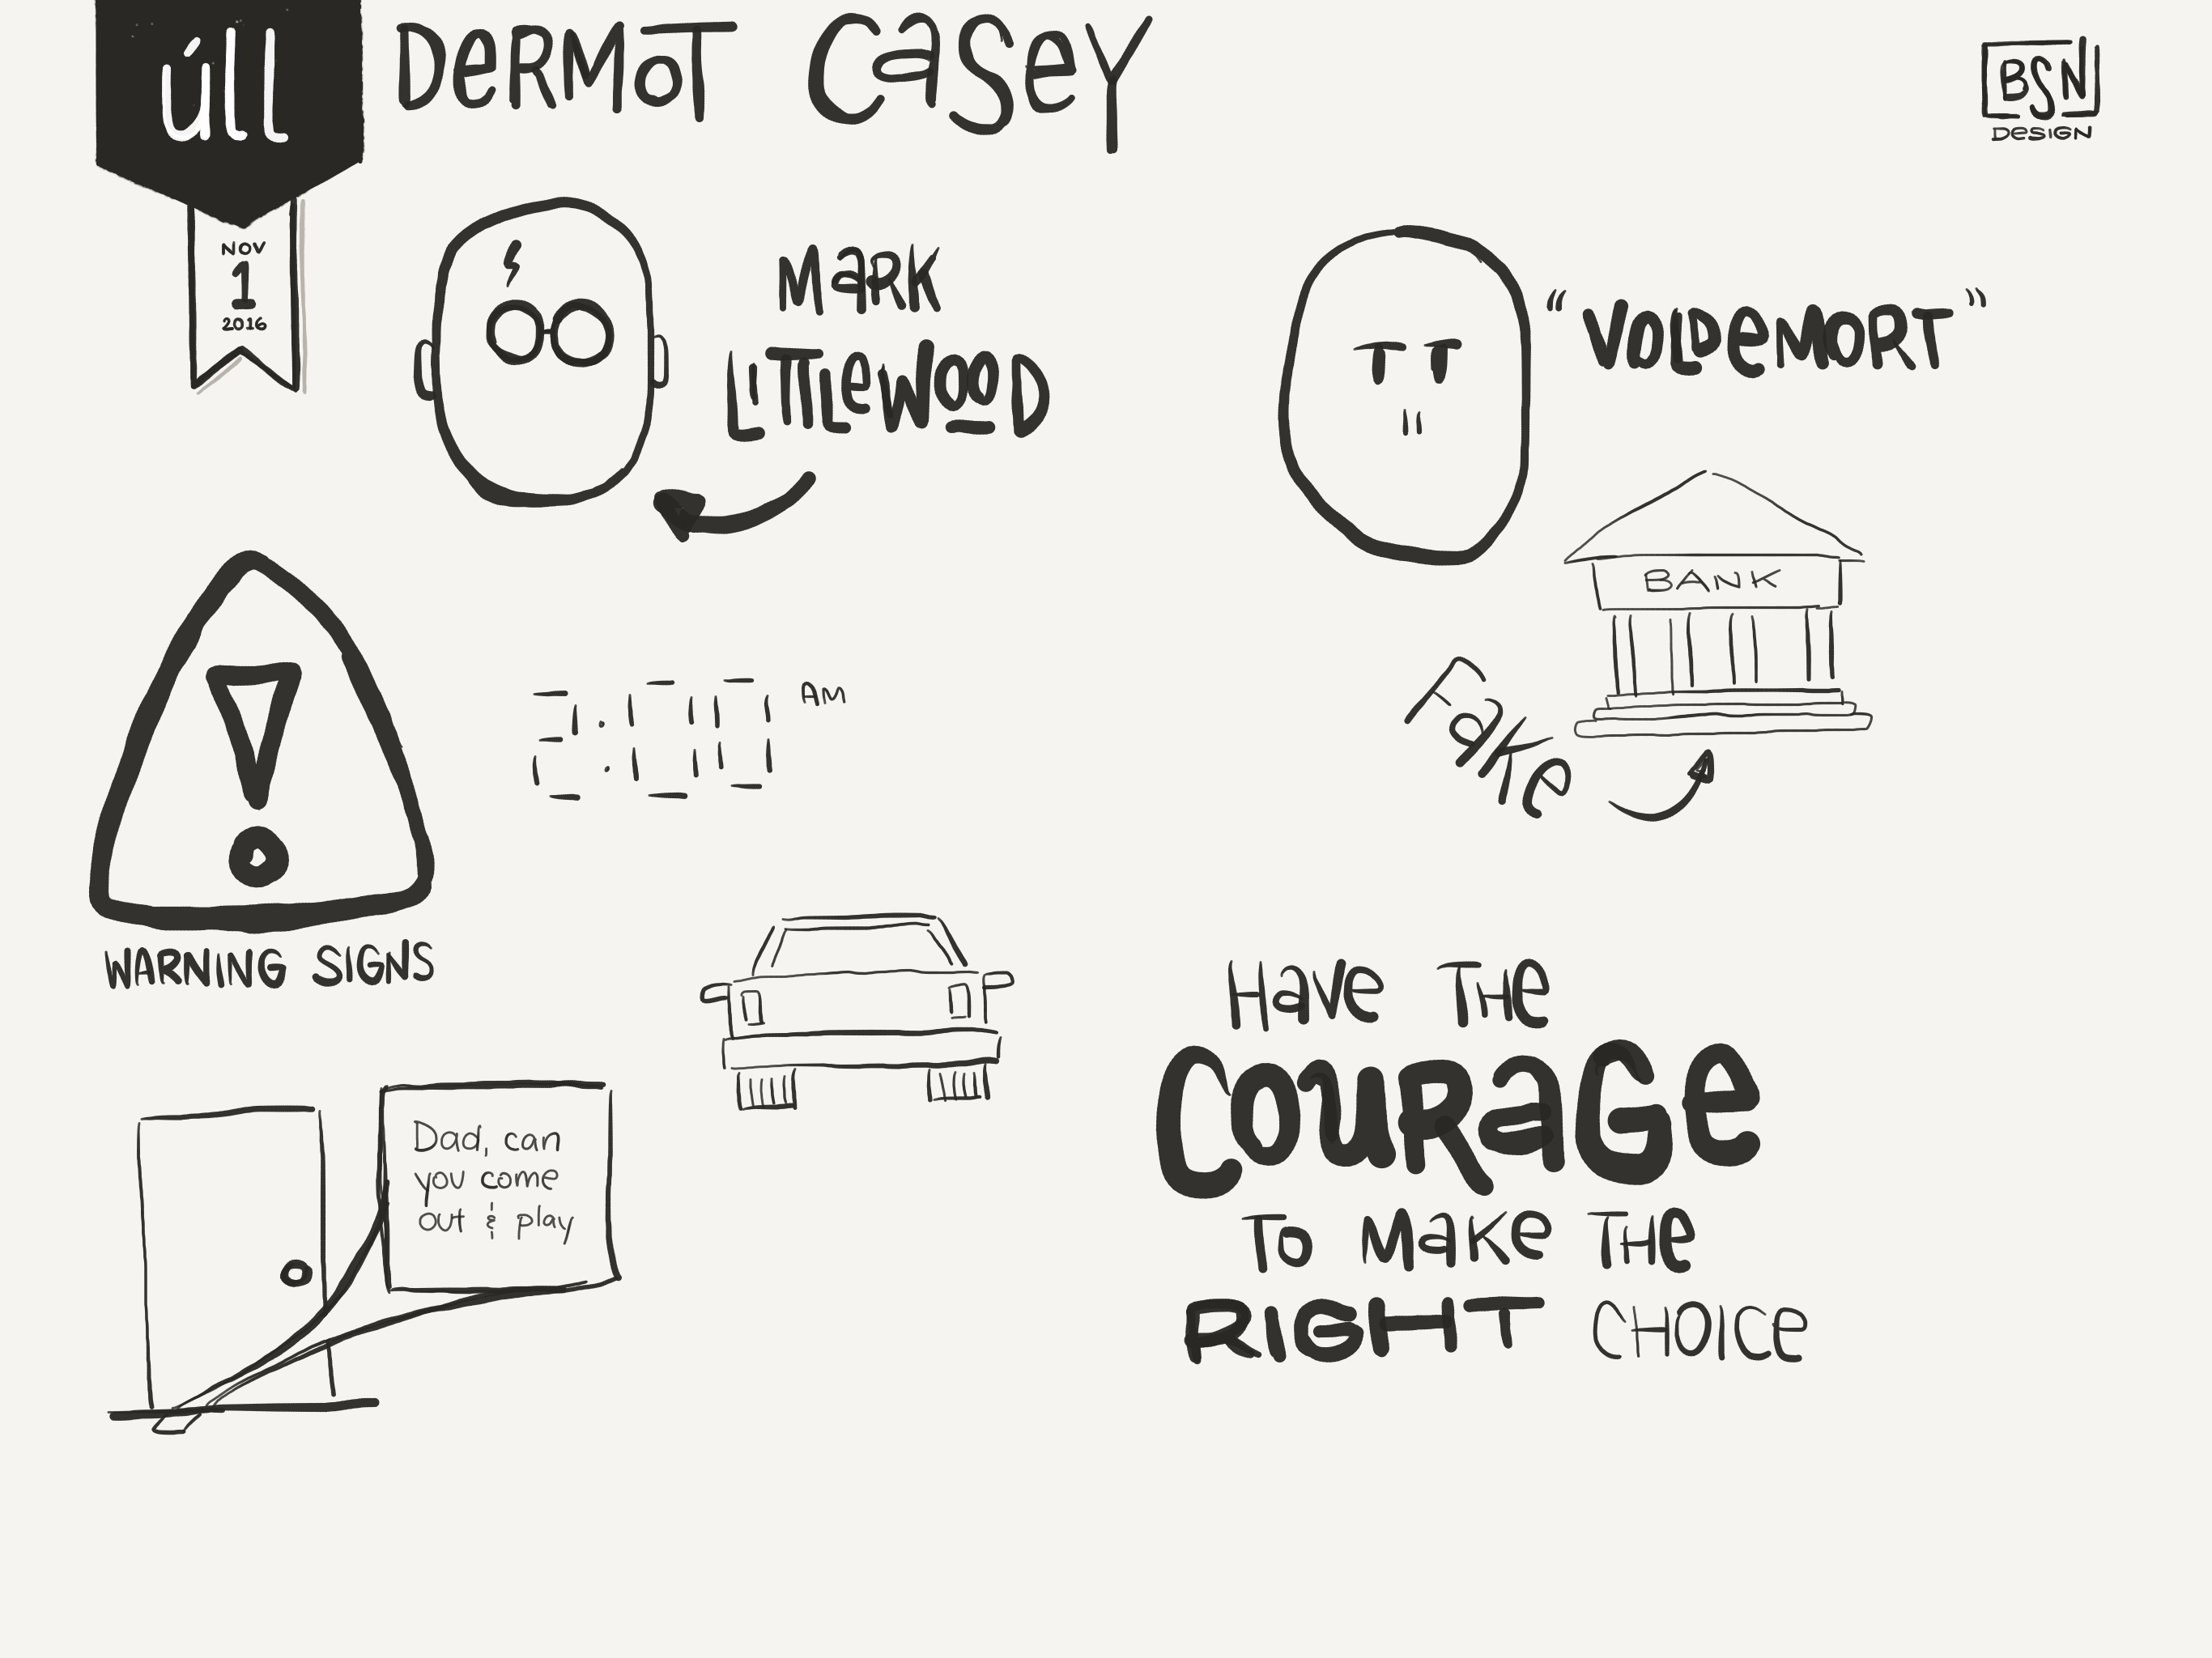 úll
DeRMoT CaSeY
BSN
DeSIGN
NOV
1
2016
MaRK
LITTLeWooD
“VOLDeMORT”
BANK
Fake
2:00 AM
WARNING SIGNS
Dad, can
you come
out & play
Have THe
CouRaGe
To Make THe
RIGHT CHOICe